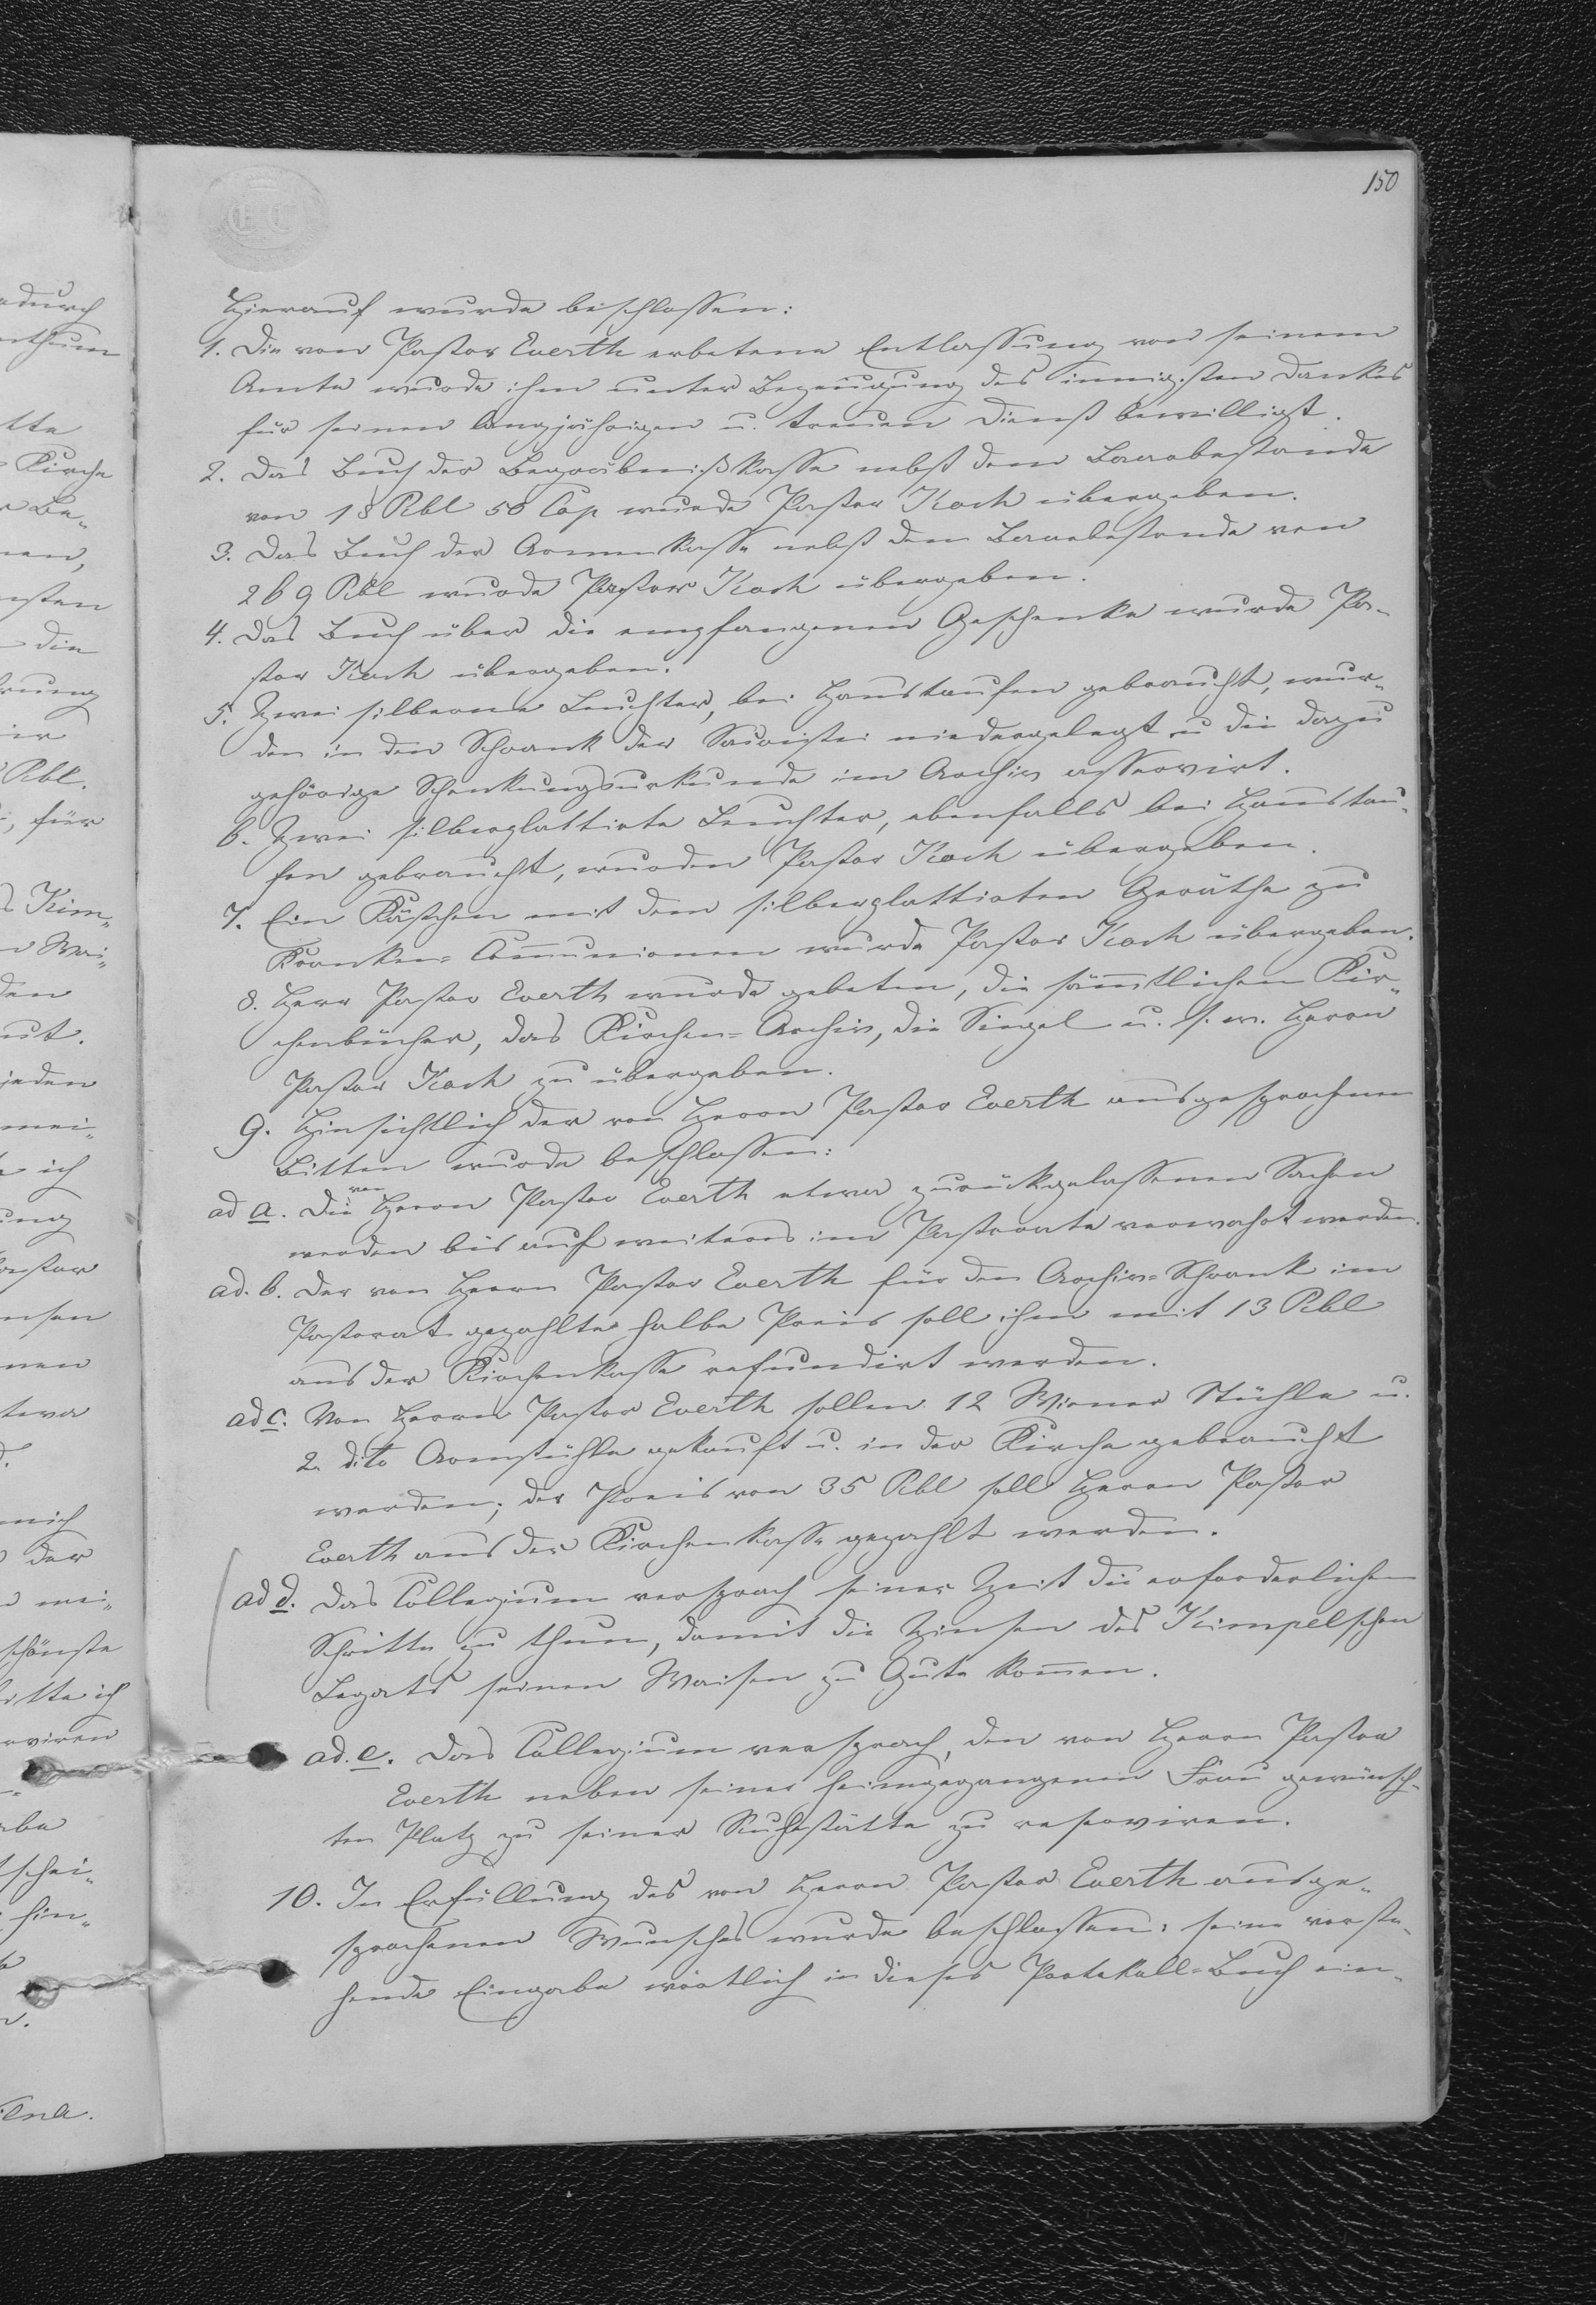 150
Hierauf wurde beschlossen:
1. Die von Pastor Everth erbetene Entlassung von seinem
Amte wurde ihm unter Bezeugung des innigsten Dankes
für seinen langjährigen u. treuen Dienst bewilligt.
2. Das Buch der Begräbnißkasse nebst dem Baarbestande
von 18 Rbl 50 Cop wurde Pastor Koch übergeben.
3. Das Buch der Armenkasse nebst dem Baarbestande von
269 Rbl wurde Pastor Koch übergeben.
4. Das Buch über die empfangenen Geschenke wurde Pa-
stor Koch übergeben.
5. Zwei silberne Leuchter, bei Haustaufen gebraucht, wur-
den in den Schrank der Sacristei niedergelegt u die dazu
gehörige Schenkungsurkunde im Archiv asservirt.
6. Zwei silberplattirte Leuchter, ebenfalls bei Haustau-
fen gebraucht, wurden Pastor Koch übergeben.
7. Ein Kästchen mit dem silberplattirten Geräthe zu
Kranken-Communionen wurde Pastor Koch übergeben.
8. Herr Pastor Everth wurde gebeten, die sämtlichen Kir-
chenbücher, das Kirchen-Archiv, die Siegel u. s. w. Herrn
Pastor Koch zu übergeben.
9. Hinsichtlich der von Herrn Pastor Everth ausgesprochenen
Bitten wurde beschlossen:
ad a. Die von Herrn Pastor Everth etwa zurückgelassenen Sachen
werden bis auf weiteres im Pastorate verwahrt werden.
ad. b. Der von Herrn Pastor Everth für den Archiv-Schrank im
Pastorat gezahlte halbe Preis soll ihm mit 13 Rbl
aus der Kirchenkasse refundirt werden.
ad c. Von Herrn Pastor Everth sollen 12 Wiener Stühle u.
2. dito Armstühle gekauft u. in der Kirche gebraucht
werden; der Preis von 35 Rbl soll Herrn Pastor
Everth aus der Kirchenkasse gezahlt werden.
ad d. Das Collegium versprach seiner Zeit die erforderlichen
Schritte zu thun, damit die Zinsen des Kimpelschen
Legats seinen Waisen zu Gute kommen.
ad. e. Das Collegium versprach, den von Herrn Pastor
Everth neben seiner heimgegangenen Frau gewünsch-
ten Platz zu seiner Ruhestätte zu reserviren.
10. In Erfüllung des von Herrn Pastor Everth ausge-
sprochenen Wunsches wurde beschlossen: seine vorste-
hende Eingabe wörtlich in dieses Protokoll-Buch ein-